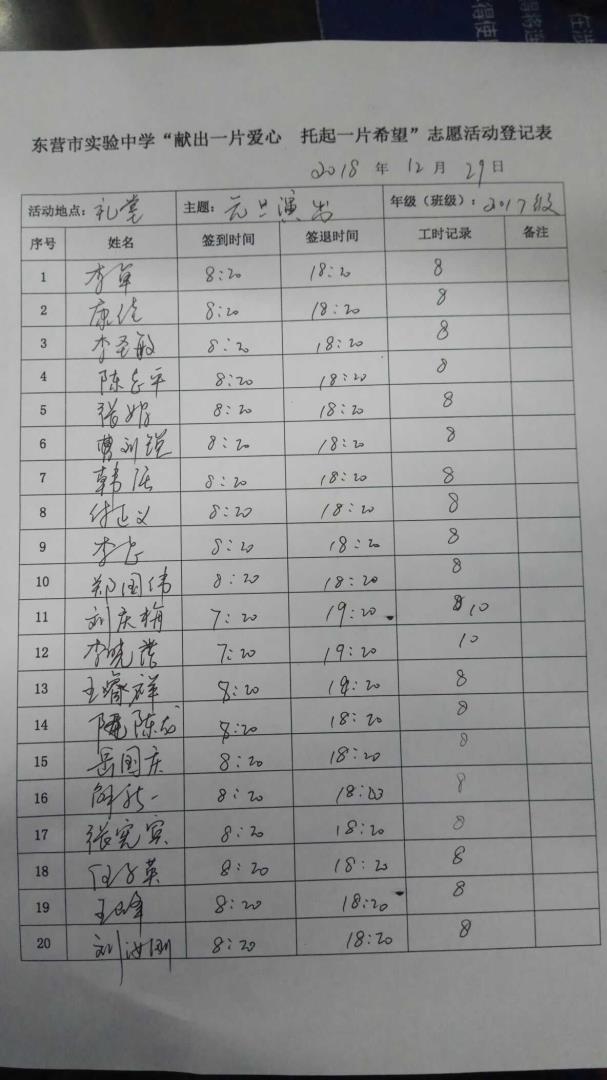 东营市实验中学“献出一片爱心 托起一片希望”志愿活动登记表
2018 年 12 月 29 日
活动地点：礼堂 主题：元旦演出 年级（班级）：2017级
序号 姓名 签到时间 签退时间 工时记录 备注
1 李军 8:20 18:20 8
2 康佳 8:20 18:20 8
3 李圣敏 8:20 18:20 8
4 陈玉平 8:20 18:20 8
5 张娟 8:20 18:20 8
6 曹刘锐 8:20 18:20 8
7 韩 8:20 18:20 8
8 付延义 8:20 18:20 8
9 李 8:20 18:20 8
10 郑国伟 8:20 18:20 8
11 刘庆梅 7:20 19:20 10
12 李晓 7:20 19:20 10
13 王睿祥 8:20 18:20 8
14 陈龙 8:20 18:20 8
15 岳国庆 8:20 18:20 8
16 8:20 18:20 8
17 张宪宾 8:20 18:20 8
18 任子英 8:20 18:20 8
19 王峰 8:20 18:20 8
20 刘汝刚 8:20 18:20 8